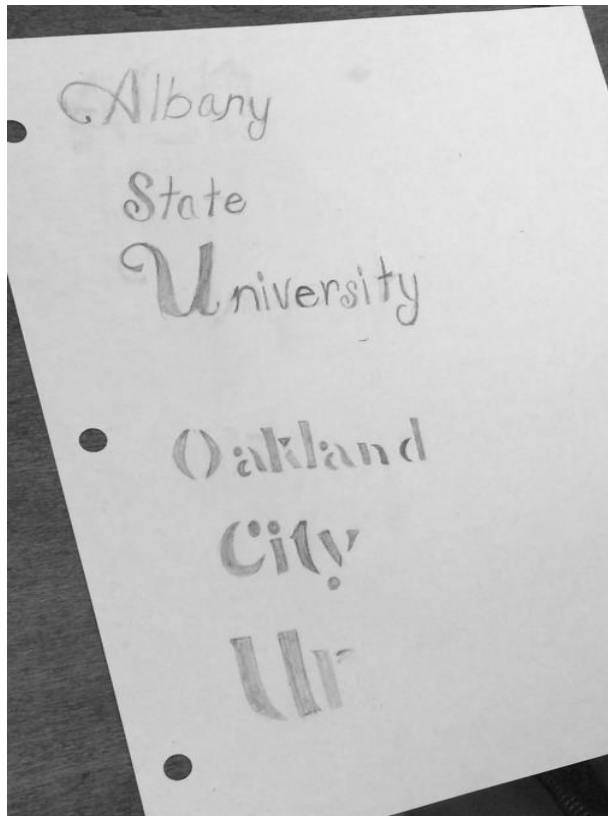 Albany
State
University
Oakland
City
Un